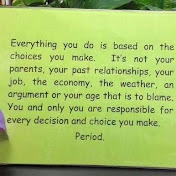 Everything you do is based on the
choices you make. It's not your
parents, your past relationships, your
job, the economy, the weather, an
argument or your age that is to blame.
You and only you are responsible for
every decision and choice you make.
Period.